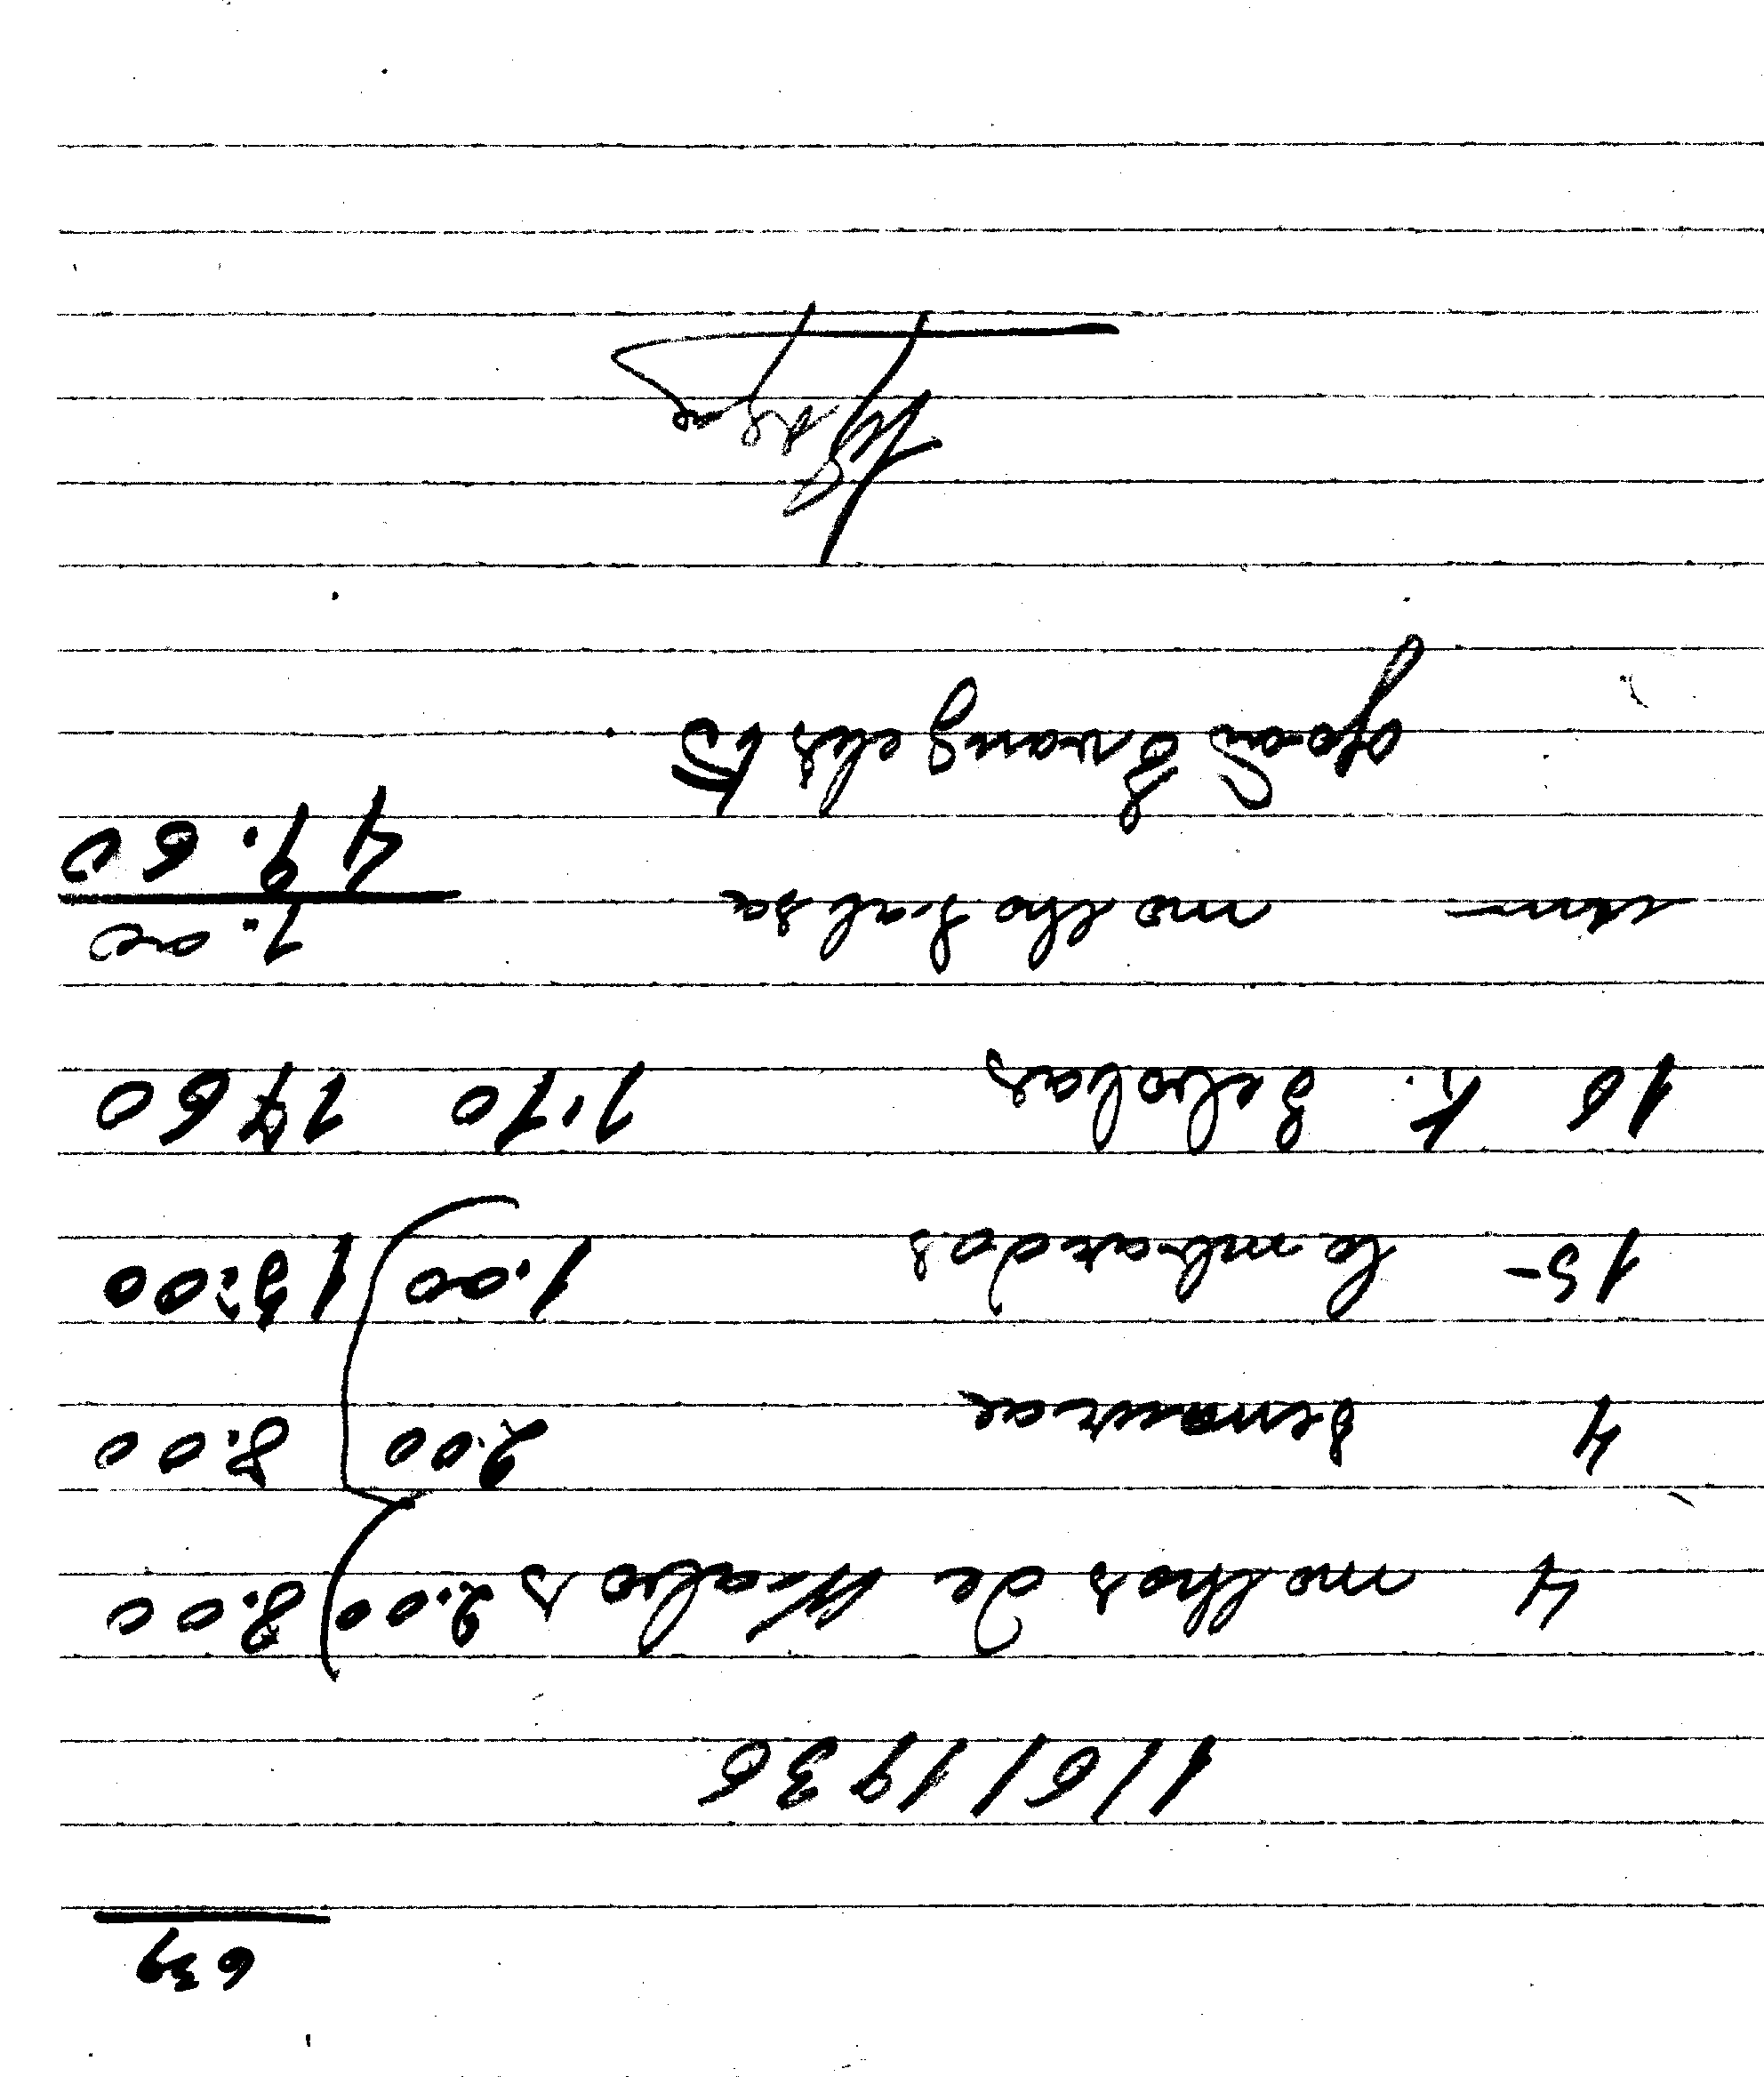 639
1/6/1936
4 molhos de Nabos 2.00 8.00
4 senouras 2.00 8.00
15- lombardos 1.00 15:00
16 k. Sebolas 1.10 17 60
um molho salsa 1.00
49.60
João Evangelista